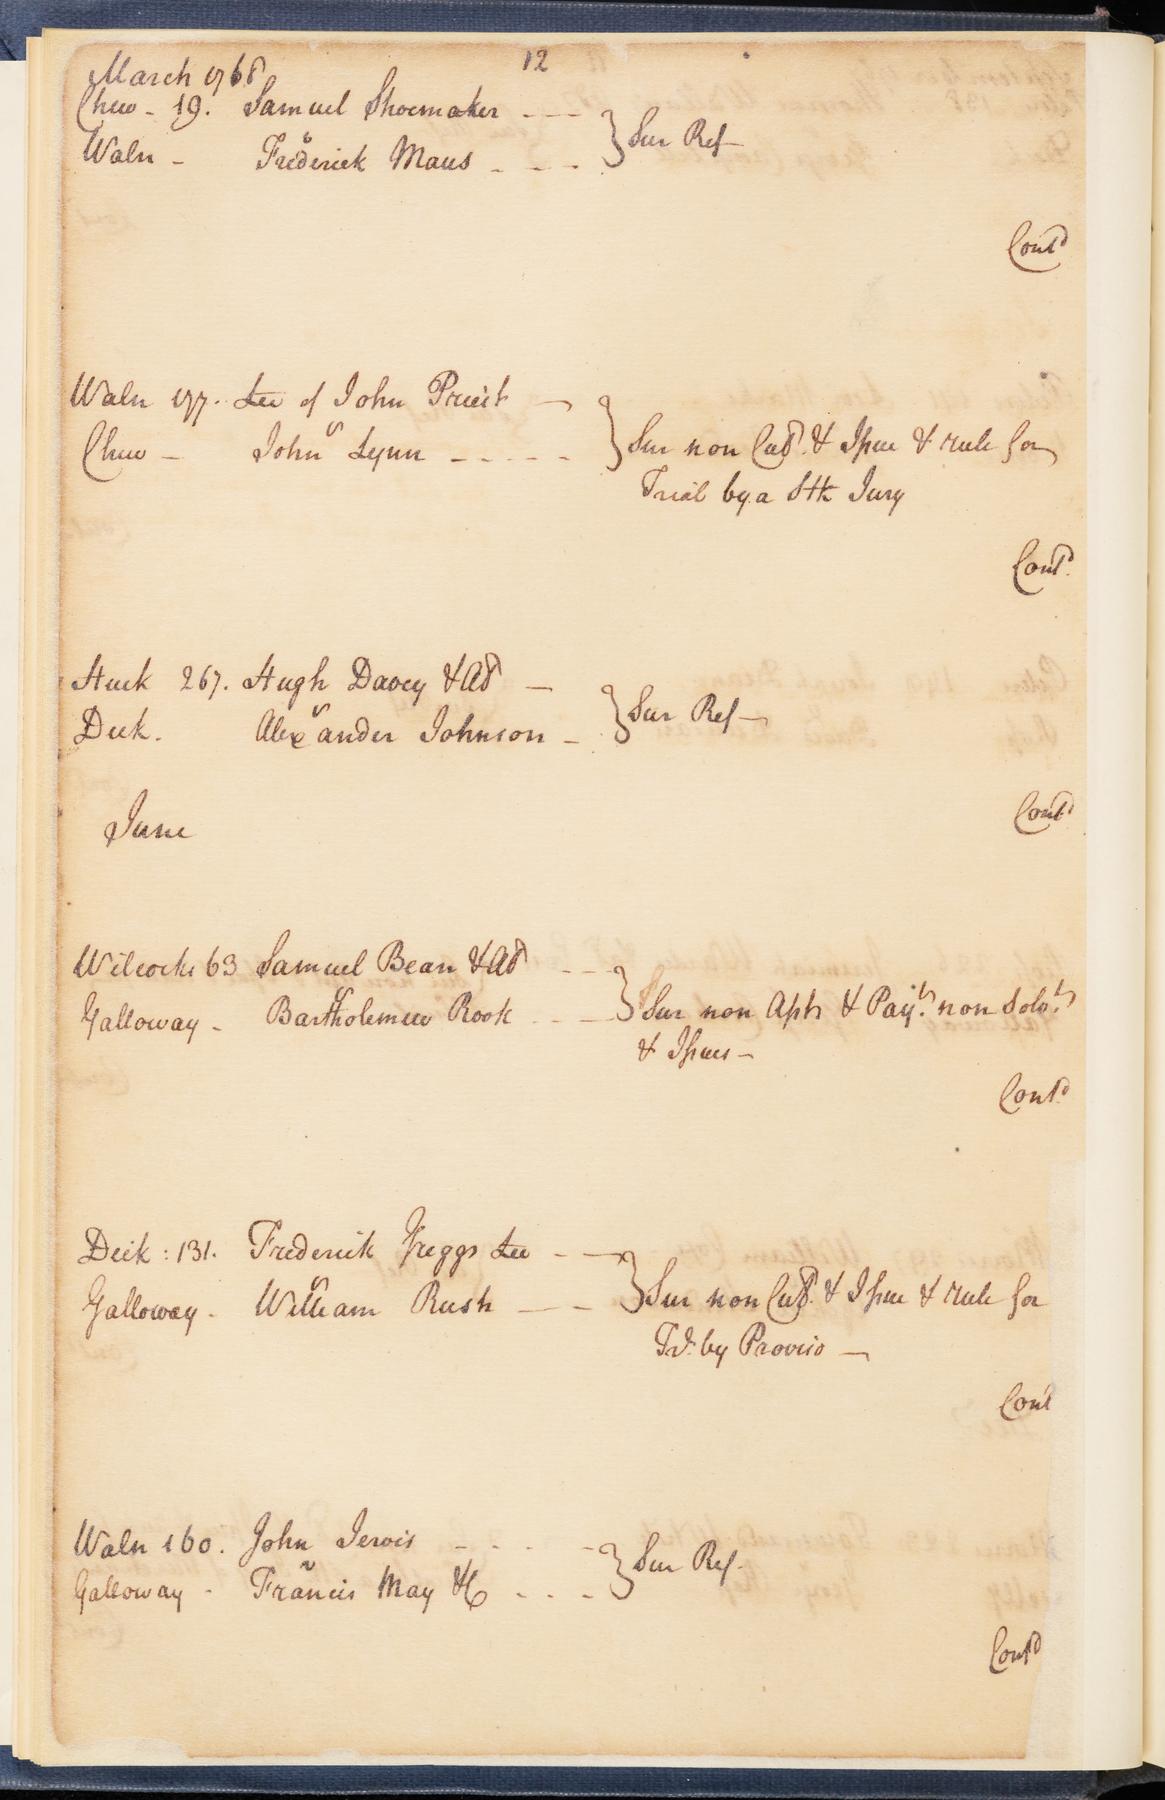 12
March 1768
Chew - 19. Samuel Shoemaker - - - } Sur Ref -
Waln - v Frederick Maus - - -
Contd
Waln 177. Lee of John Priest - } Sur non Cul & Issue & rule for
Chew - v John Lynn - - - - -
Trial by a Stk Jury
Contd.
Huck 267. Hugh Davey & Al - } Sur Ref -
Dick. v Alexander Johnson -
Contd
June
Wilcocks 63 Samuel Bean & Al - - } Sur non Aps & Paymt. non Solvt.
Galloway - v Bartholemew Rook - - -
& Issues -
Contd
Dick : 131. Frederick Greggs Lee - - } Sur non Cul. & Issue & rule for
Galloway - v William Rush - -
Trl. by Proviso -
Cont
Waln 160. John Jervis - - - - } Sur Ref.
Galloway - v Francis May &c - - -
Contd